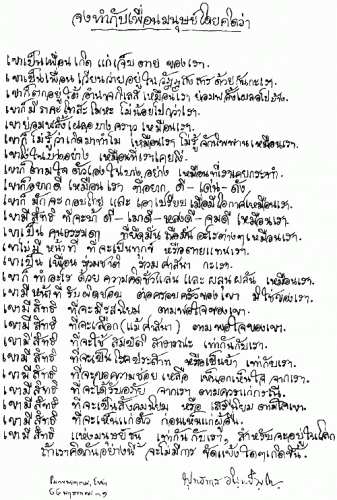 จงทำกับเพื่อนมนุษย์โดยคิดว่า
เขาเป็นเพื่อนเกิด แก่ เจ็บ ตาย ของเรา.
เขาเป็นเพื่อนเวียนว่ายอยู่ในวัฏฏสงสารด้วยกันกะเรา.
เขาก็ตกอยู่ใต้อำนาจกิเลสเหมือนเรา ย่อมพลั้งเผลอไปบ้าง.
เขาก็มีราคะโทสะโมหะ ไม่น้อยไปกว่าเรา.
เขาย่อมพลั้งเผลอบางคราว เหมือนเรา.
เขาก็ไม่รู้ว่าเกิดมาทำไม เหมือนเรา ไม่รู้จักนิพพานเหมือนเรา.
เขาโง่ในบางอย่าง เหมือนที่เราเคยโง่.
เขาก็ตามใจตัวเองในบางอย่าง เหมือนที่เราเคยกระทำ.
เขาก็อยากดี เหมือนเรา ที่อยาก ดี-เด่น-ดัง.
เขาก็มักจะกอบโกย และเอาเปรียบ เมื่อมีโอกาสเหมือนเรา.
เขามีสิทธิ ที่จะบ้าดี-เมาดี-หลงดี-จมดี เหมือนเรา.
เขาเป็นคนธรรมดา ที่ยึดมั่น ถือมั่น อะไรต่างๆ เหมือนเรา.
เขาไม่มีหน้าที่ ที่จะเป็นทุกข์ หรือตายแทนเรา.
เขาเป็นเพื่อน ร่วมชาติ ร่วมศาสนา กะเรา.
เขาก็ทำอะไร ด้วยความคิดชั่วแล่น และผลุนผลัน เหมือนเรา.
เขามีหน้าที่รับผิดชอบ ต่อครอบครัวของเขา มิใช่ของเรา.
เขามีสิทธิ ที่จะมีรสนิยม ตามพอใจของเขา.
เขามีสิทธิ ที่จะเลือก(แม้ศาสนา) ตามพอใจของเขา.
เขามีสิทธิ ที่จะใช้สมบัติสาธารณะ เท่ากันกับเรา.
เขามีสิทธิ ที่จะเป็นโรคประสาท หรือเป็นบ้า เท่ากับเรา.
เขามีสิทธิ ที่จะขอความช่วยเหลือ เห็นอกเห็นใจ จากเรา.
เขามีสิทธิ ที่จะได้รับอภัย จากเรา ตามควรแก่กรณี.
เขามีสิทธิ ที่จะเป็นสังคมนิยม หรือ เสรีนิยม ตามใจเขา.
เขามีสิทธิ ที่จะเห็นแก่ตัว ก่อนเห็นแก่ผู้อื่น.
เขามีสิทธิ แห่งมนุษยชน เท่ากันกับเรา, สำหรับจะอยู่ในโลก
ถ้าเราคิดกันอย่างนี้ จะไม่มีการ ขัดแย้งใดๆเกิดขึ้น.
พุทธทาส อินทปัญโญ